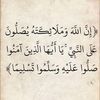 ﴿ إِنَّ اللَّهَ وَمَلَائِكَتَهُ يُصَلُّونَ
عَلَى النَّبِيِّ ۚ يَا أَيُّهَا الَّذِينَ آمَنُوا
صَلُّوا عَلَيْهِ وَسَلِّمُوا تَسْلِيمًا ﴾